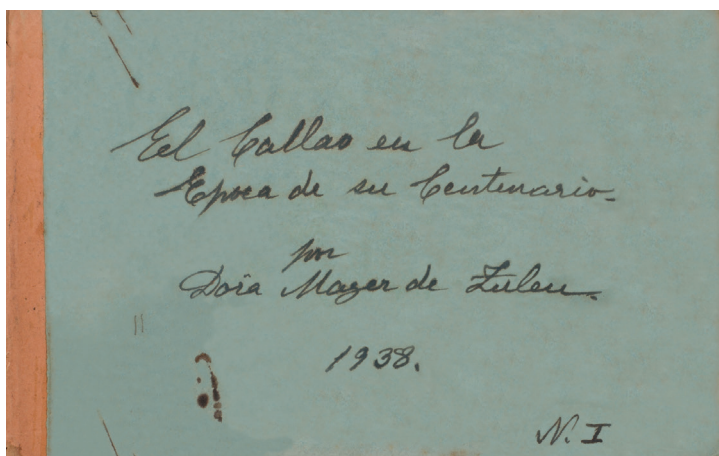 El Callao en la
Epoca de su Centenario.
por
Dora Mayer de Zulen.
1938.
N. I